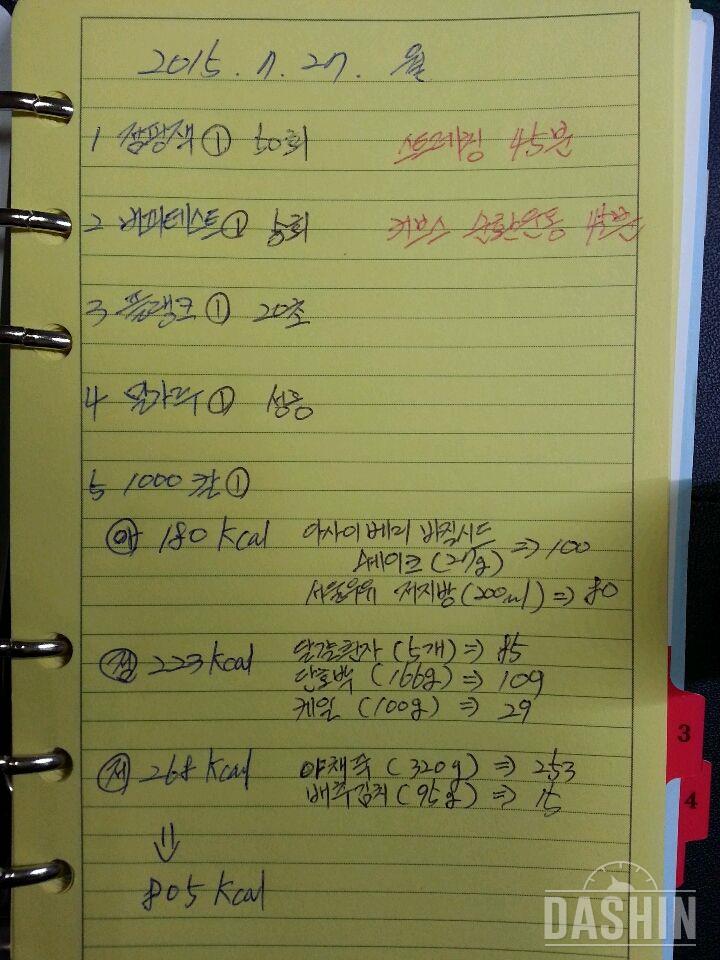 2015. 7. 27. 월
1 점핑잭 ① 50회 스트레칭 45분
2 버피테스트 ① 5회 커브스 순환운동 45분
3 플랭크 ① 20초
4 밀가루 ① 성공
5 1000칼 ①
아 180 Kcal 아사이베리 바질시드
쉐이크 (27g) => 100
서울우유 저지방 (200ml) => 80
점 223 Kcal 달걀흰자 (5개) => 85
단호박 (166g) => 109
케일 (100g) => 29
저 268 Kcal 야채죽 (320g) => 253
배추김치 (95g) => 15
805 Kcal
3
4
DASHIN